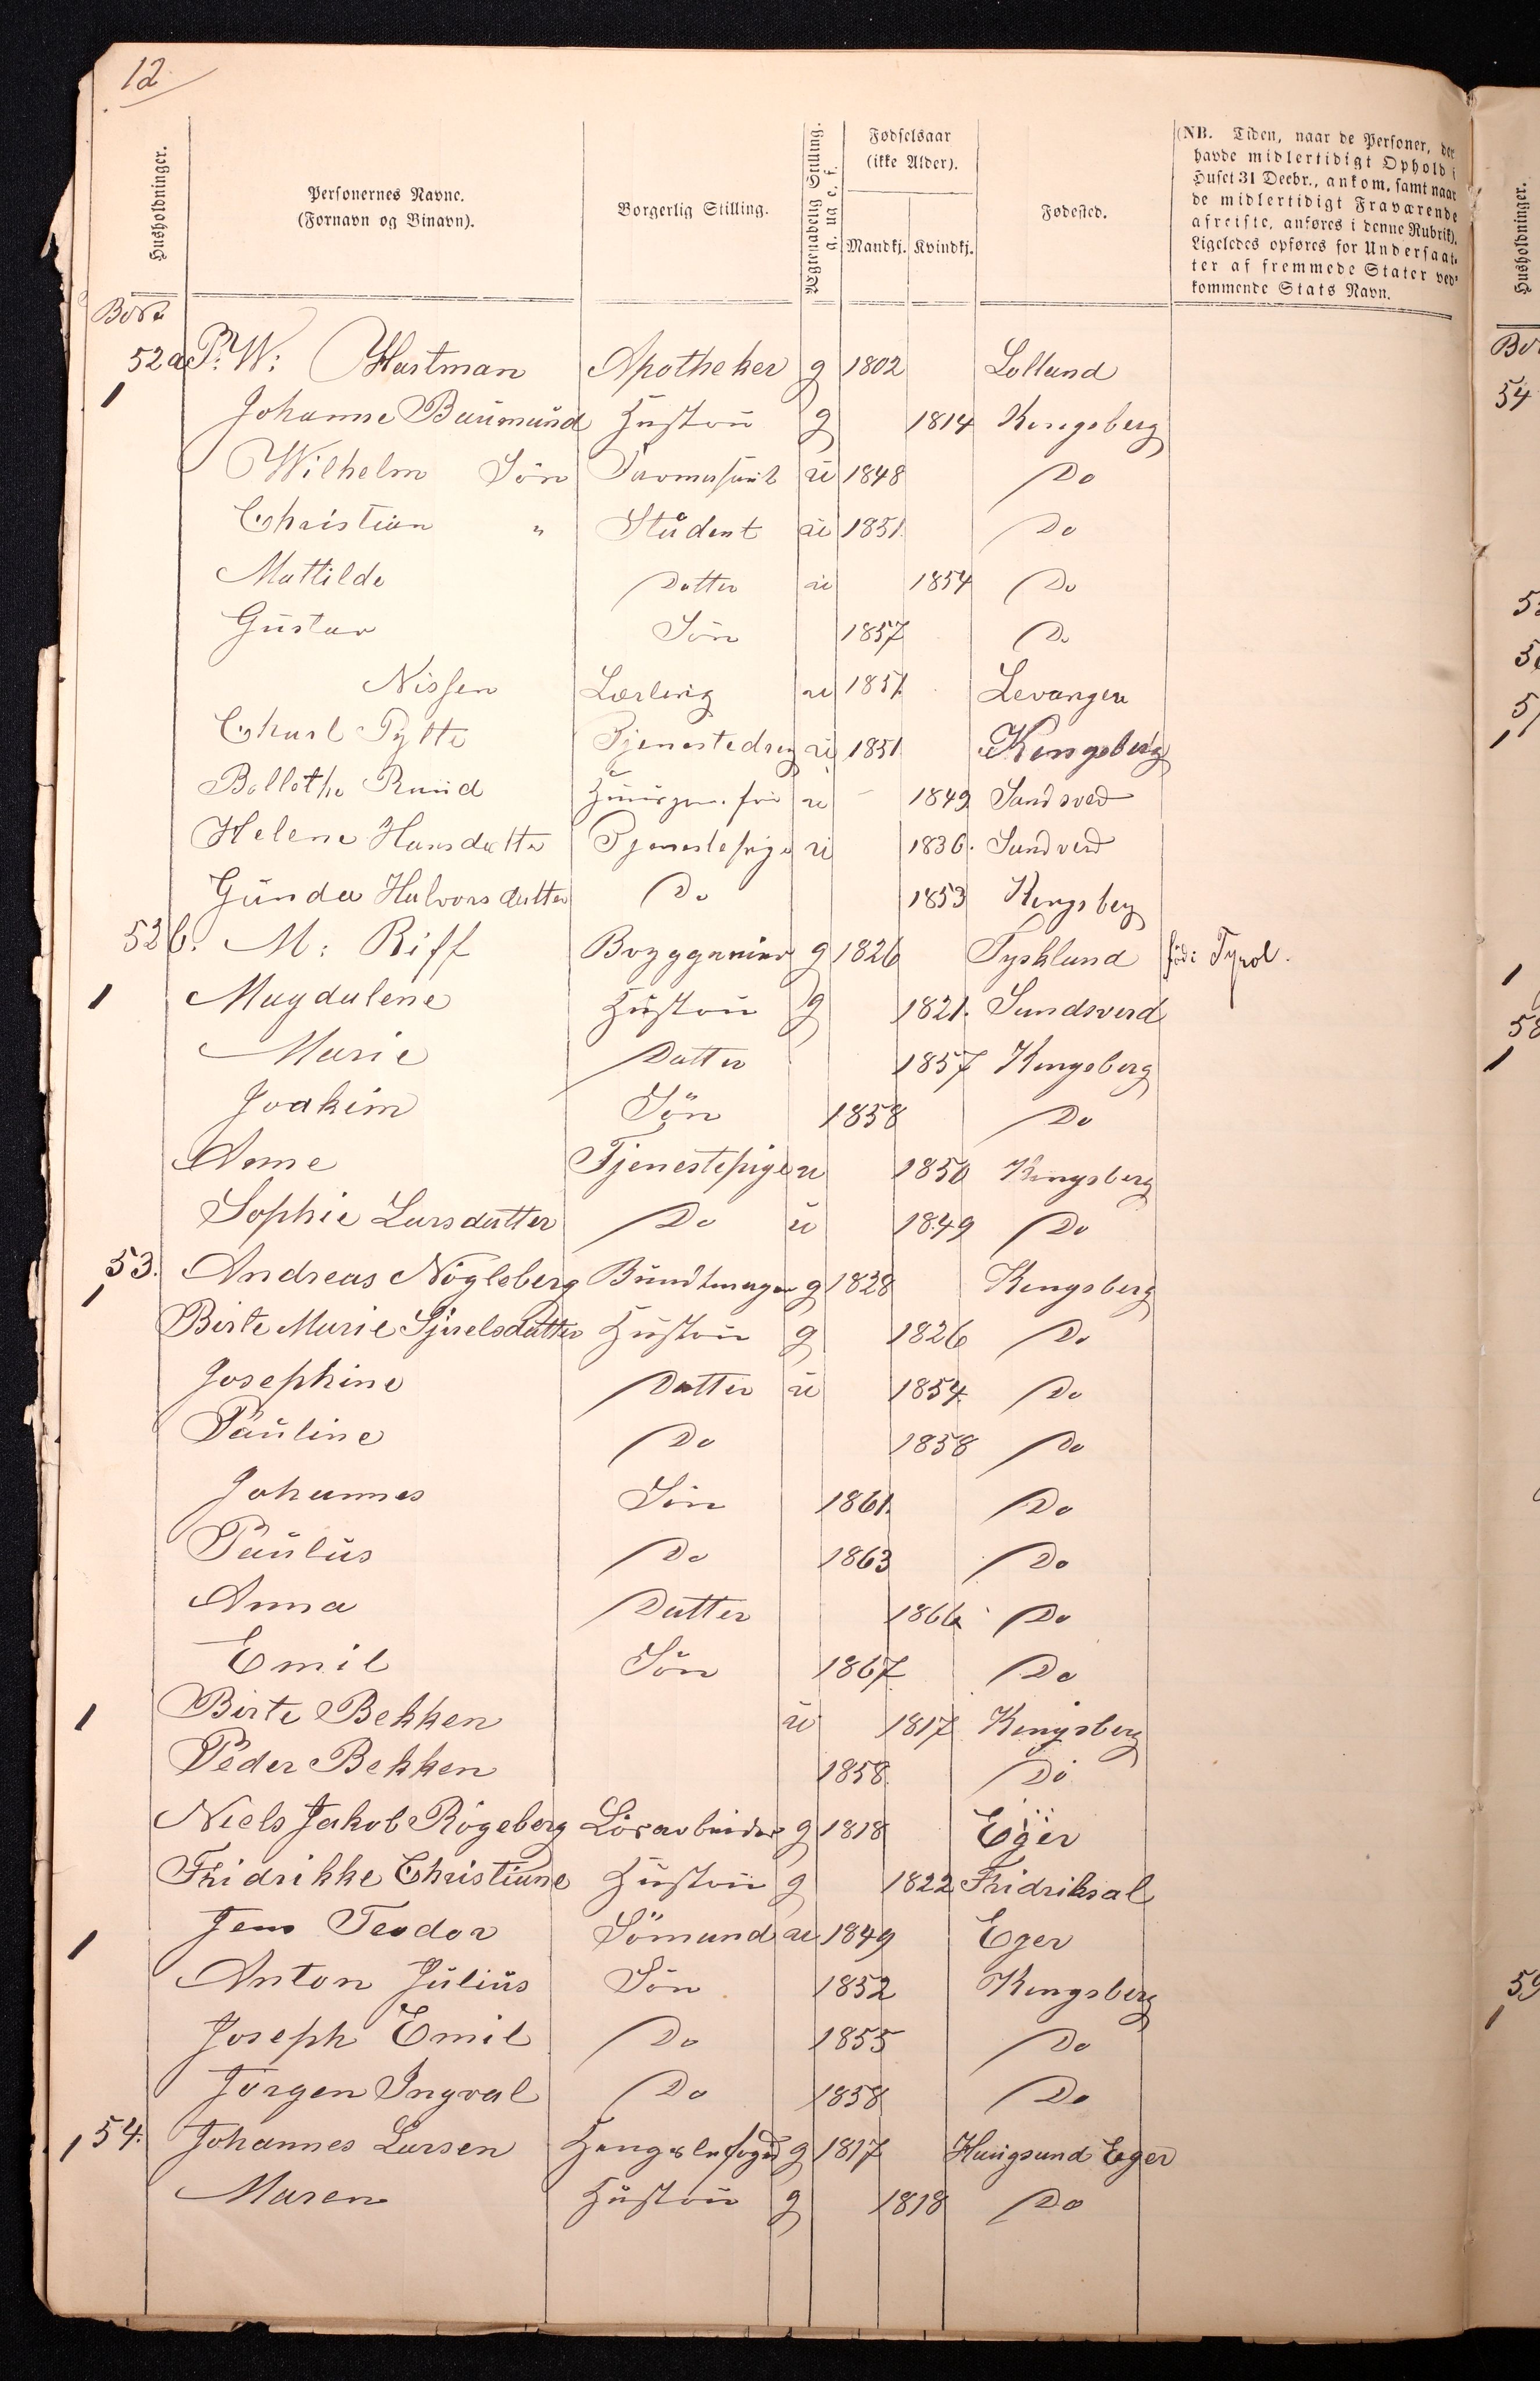 12
Husholdninger.
Personernes Navne.
(Fornavn og Binavn).
Borgerlig Stilling.
Ægteskabelig Stilling.
a. ug e. f.
Fødselsaar
(ikke Alder).
Mandkj. Kvindkj.
Fødested.
(NB. Tiden, naar de Personer, der
havde midlertidigt Ophold i
Huset 31 Decbr., ankom, samt naar
de midlertidigt Fraværende
afreiste, anføres i denne Rubrik).
Ligeledes opføres for Undersaat-
ter af fremmede Stater ved-
kommende Stats Navn.
52a P. W: Hartman Apotheker g 1802 Lolland
1
Johanne Baumund Hustru g 1814 Kongsberg
Wilhelm Sön Farmaseut u 1848 Do
Christian " Student u 1851 Do
Mattilde Datter u 1854 Do
Gustav Sön 1857 Do
Nissen Lærling u 1851 Levanger
Charl Pytte Tjenestedreng u 1851 Kongsberg
Ruud u 1849 Sandsvед
Helene Hansdatter Tjenestepige u 1836. Sandverd
Gunda Halvorsdatter Do 1853 Kongsberg
52b. M: Riff g 1826 Tyskland föd i Tyrol.
1 Magdalene Hustru g 1821. Sandsverd
Marie Datter 1857 Kongsberg
Joakim Sön 1858 Do
Anne Tjenestepige u 1850 Kongsberg
Sophie Larsdatter Do u 1849 Do
53. Andreas Nögleberg Bundtmager g 1828 Kongsberg
1
Birte Marie Hustru g 1826 Do
Josephine Datter u 1854 Do
Pauline Do 1858 Do
Johannes Sön 1861 Do
Paulus Do 1863 Do
Anna Datter 1866 Do
Emil Sön 1867 Do
1 Birte Bekken u 1817 Kongsberg
Peder Bekken 1858 Do
Niels Jakob Rögeberg Lösarbeider g 1818 Eger
Fridrikke Christiane Hustru g 1822 Fridriksal
1 Jens Teodor Sömand u 1849 Eger
Anton Julius Sön 1852 Kongsberg
Joseph Emil Do 1855 Do
Jörgen Ingval Do 1858 Do
1 54. Johannes Larsen g 1817 Haugsund Eger
Maren Hustru g 1818 Do
Husholdninger.
54
57
1
1
58
1
59
1